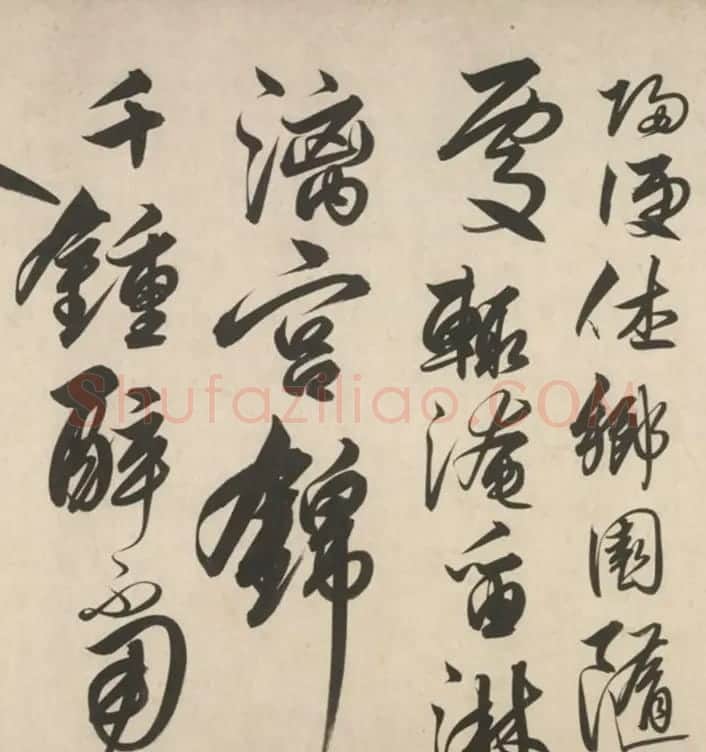 歸便住鄉園隨
處輒淹留淋
漓宮錦
千鍾醉不用
Shufaziliao.COM